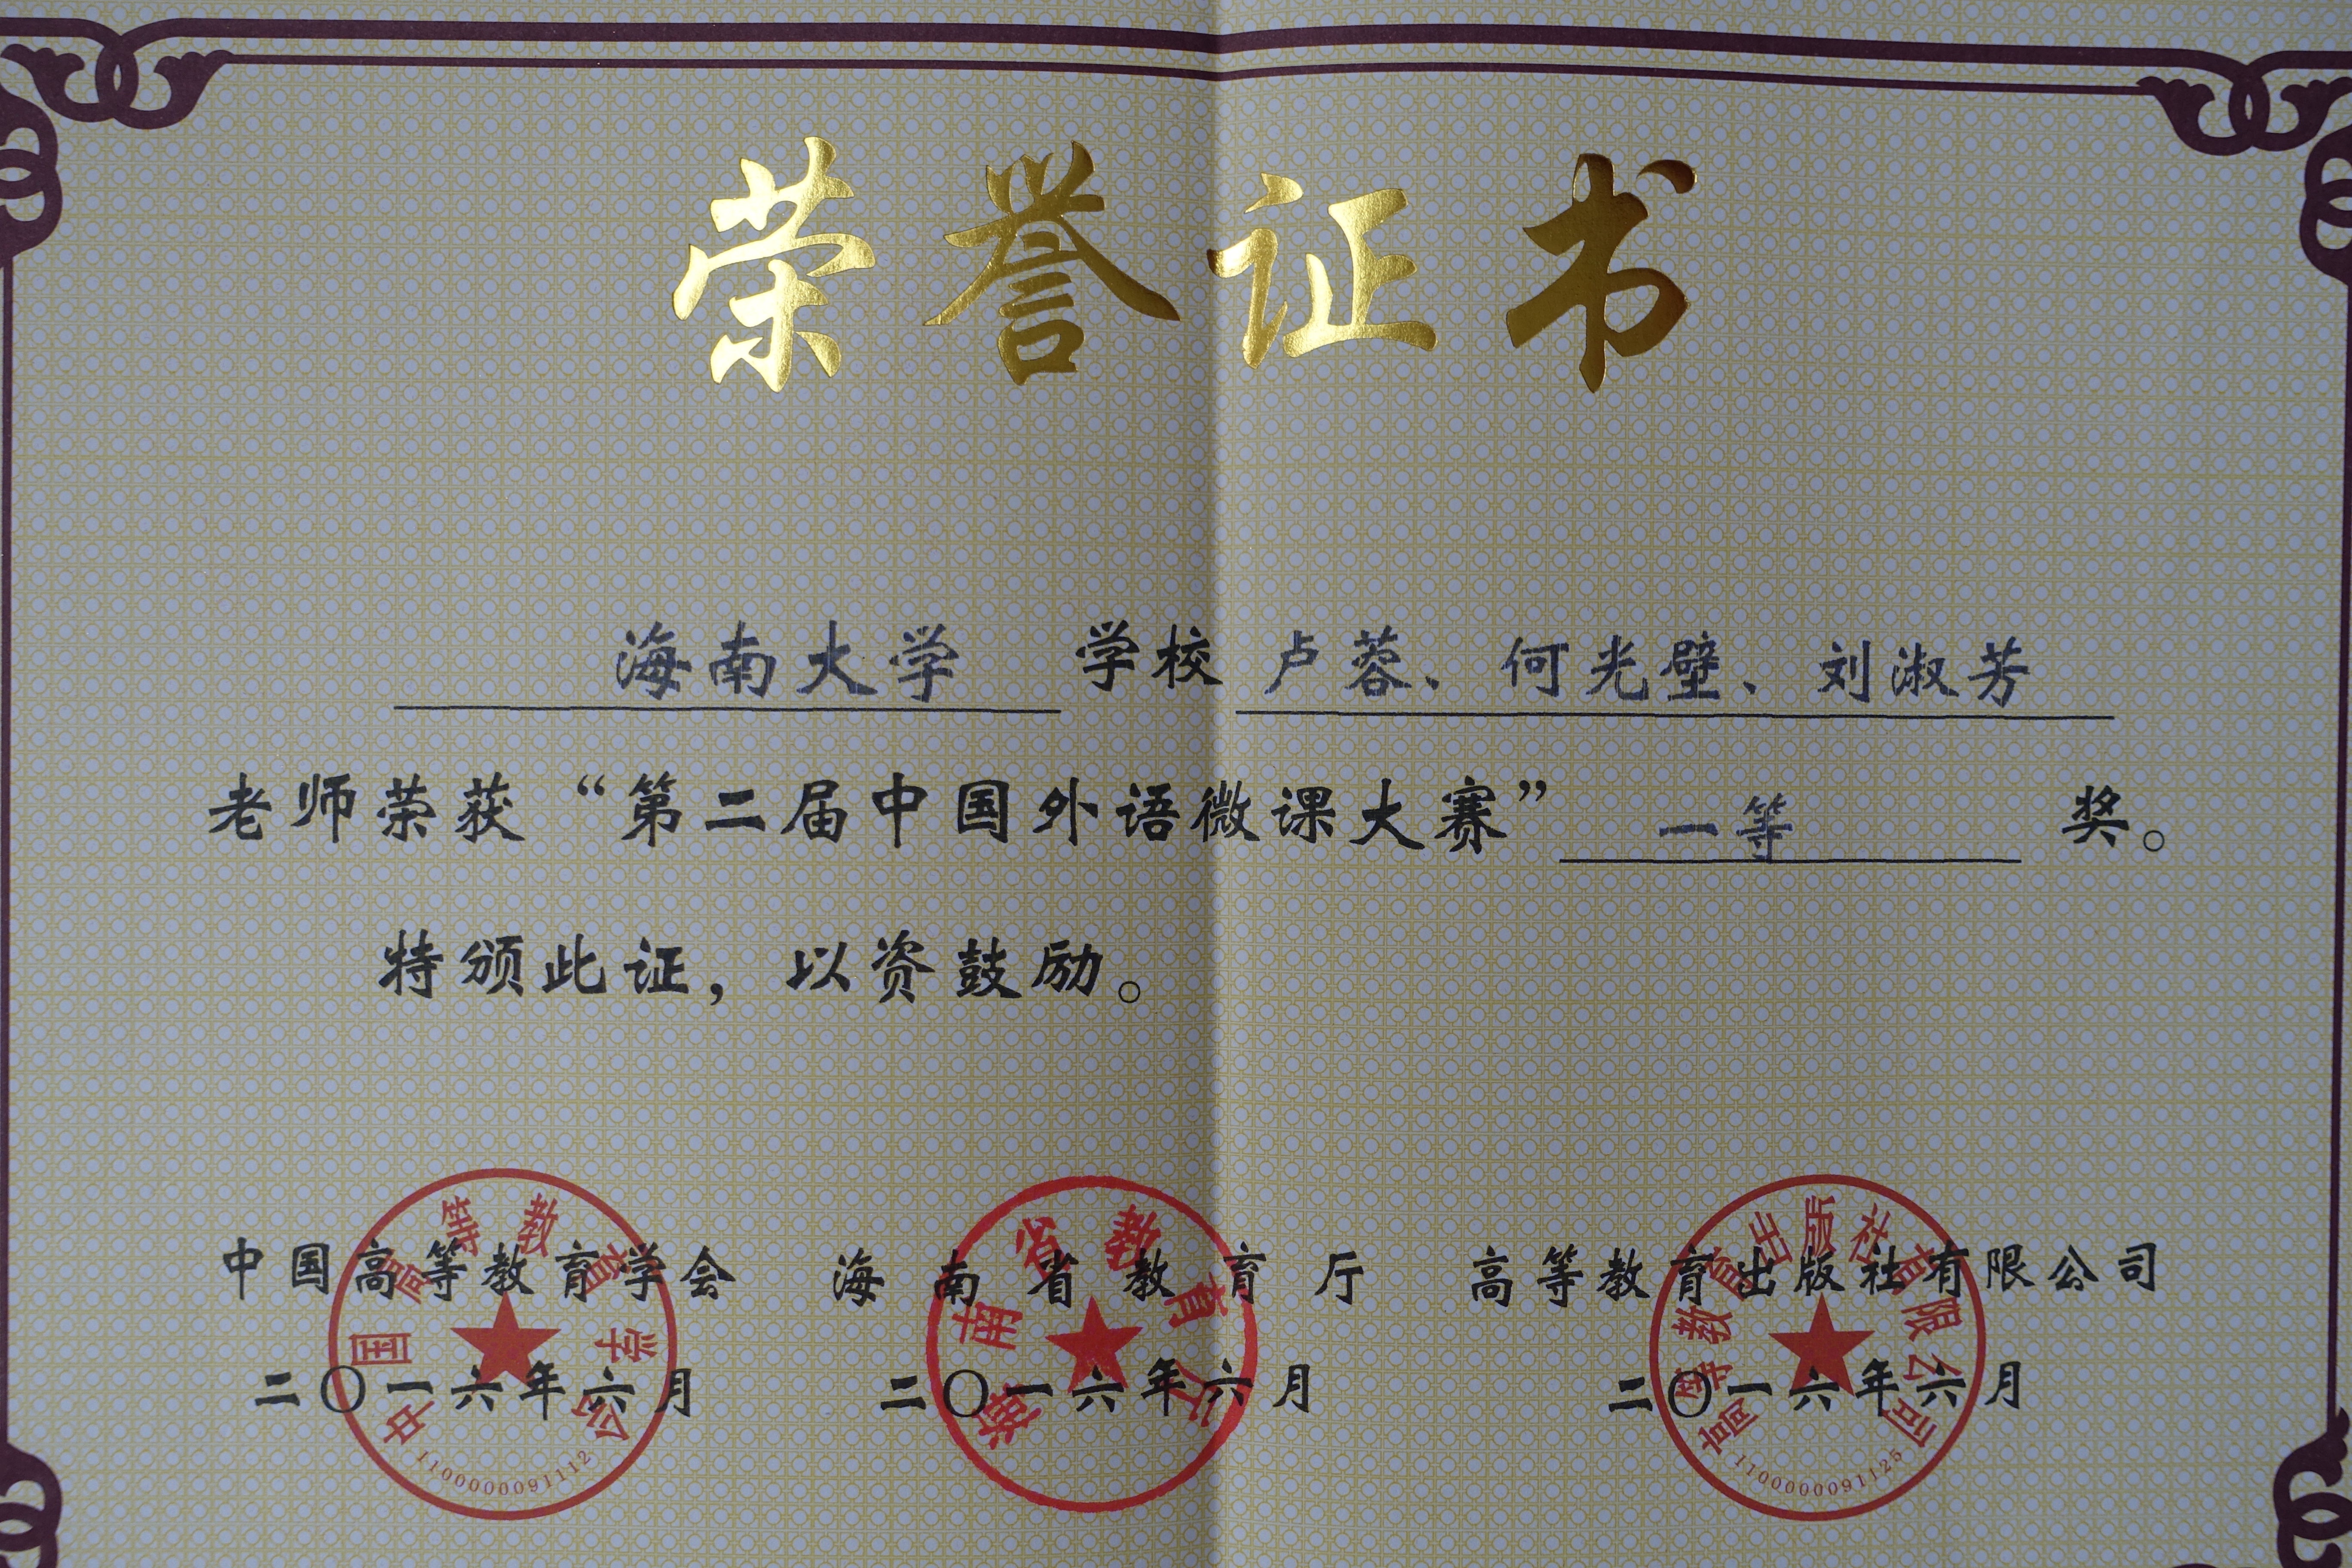 荣誉证书
海南大学 学校 卢蓉、何光壁、刘淑芳
老师荣获“第二届中国外语微课大赛” 一等 奖。
特颁此证，以资鼓励。
中国高等教育学会 海南省教育厅 高等教育出版社有限公司
二〇一六年六月 二〇一六年六月 二〇一六年六月
中国高等教育学会
1100000091112
海南省教育厅
高等教育出版社有限公司
1100000091125